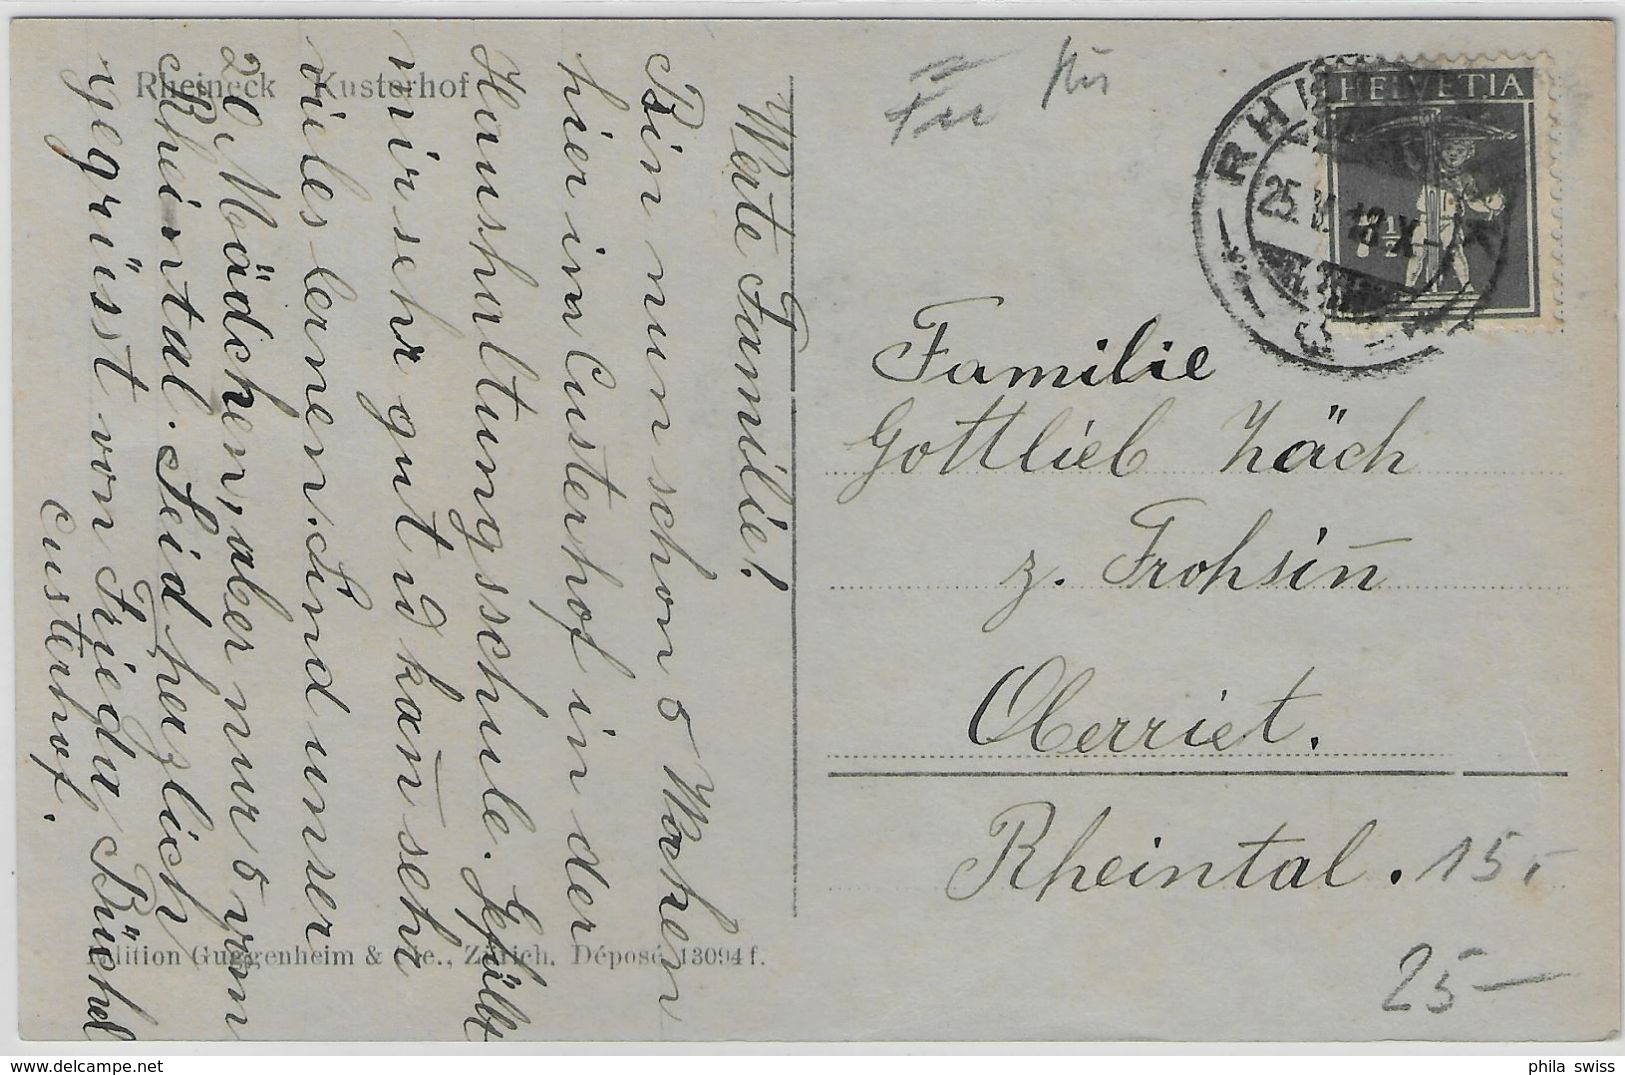 Rheineck Kusterhof
Werte Familie!
Bin nun schon 5 Wochen
hier im Custerhof in der
Haushaltungsschule. Gefällt
mir sehr gut u kan̄ seht
vieles lernen. Sind unser
20 Mädchen, aber nur 5 vom
Rheintal. Seid herzlich
gegrüsst von Frieda Büchel
Custerhof.
Edition Guggenheim & Cie., Zürich. Déposé 13094 f.
HELVETIA
25. 18 X
Familie
Gottlieb Zäch
z. Frohsin̄
Oberriet.
Rheintal.
15.-
25-
phila swiss